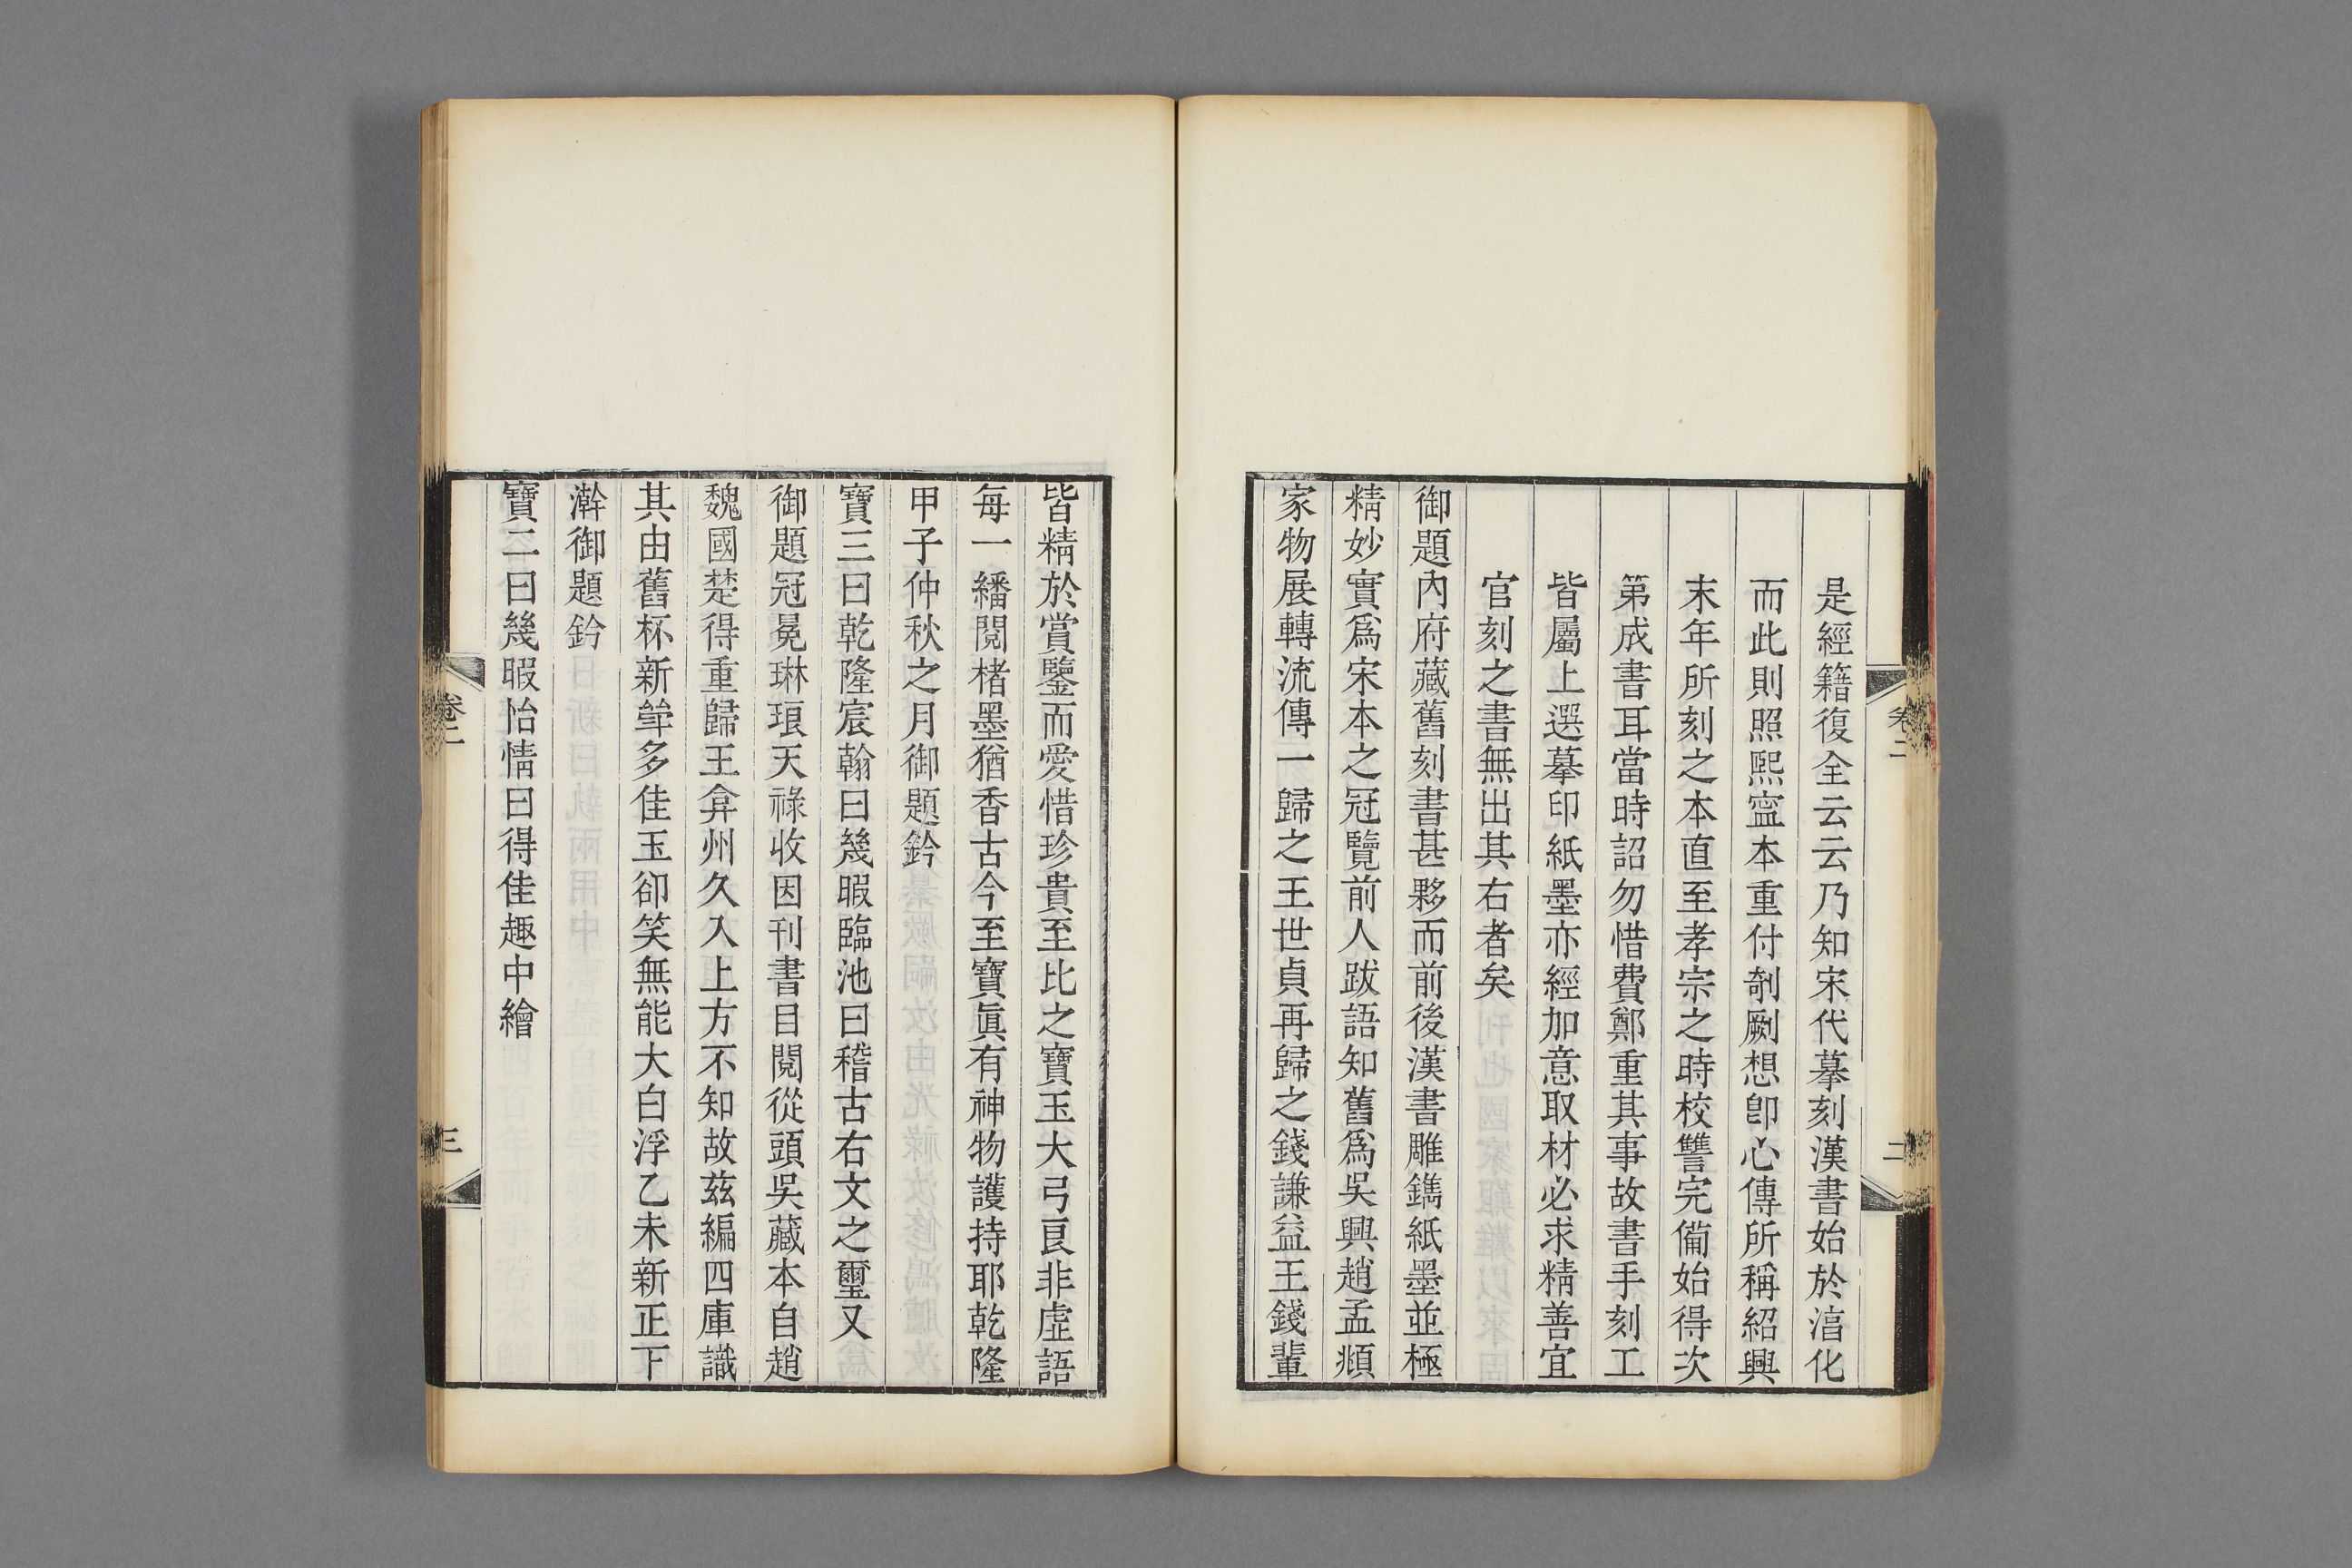 是經籍復全云云乃知宋代摹刻漢書始於淳化
而此則照熙寍本重付剞劂想卽心傳所稱紹興
末年所刻之本直至孝宗之時校讐完備始得次
第成書耳當時詔勿惜費鄭重其事故書手刻工
皆屬上選摹印紙墨亦經加意取材必求精善宜
官刻之書無出其右者矣
御題內府藏舊刻書甚夥而前後漢書雕鐫紙墨並極
精妙實爲宋本之冠覽前人跋語知舊爲吳興趙孟頫
家物展轉流傳一歸之王世貞再歸之錢謙益王錢輩
卷二
二
皆精於賞鑒而愛惜珍貴至比之寶玉大弓良非虛語
每一繙閱楮墨猶香古今至寶眞有神物護持耶乾隆
甲子仲秋之月御題鈐
寶三曰乾隆宸翰曰幾暇臨池曰稽古右文之璽又
御題冠冕琳琅天祿收因刊書目閱從頭吳藏本自趙
魏國楚得重歸王弇州久入上方不知故茲編四庫識
其由舊杯新斝多佳玉卻笑無能大白浮乙未新正下
澣御題鈐
寶二曰幾暇怡情曰得佳趣中繪
卷二
三